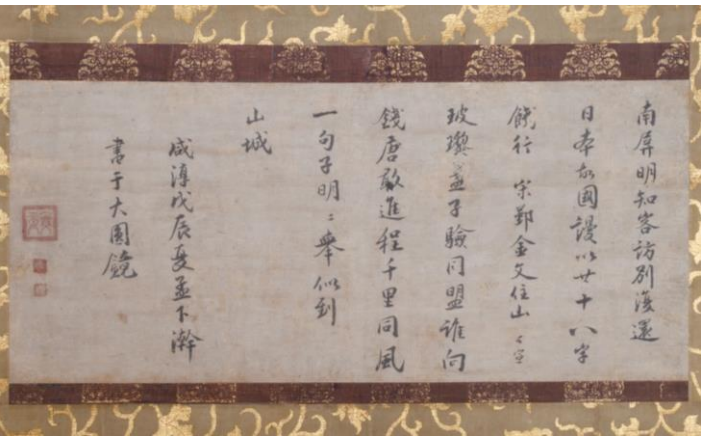 南屏明知客訪別還
日本故國謾以廿十八字
餞行 宋鄞金文住山
玻瓈盞子驗同盟誰向
錢唐敢進程千里同風
一句子明〻舉似到
山城
咸淳戊辰夏孟下澣
書于大圓鏡